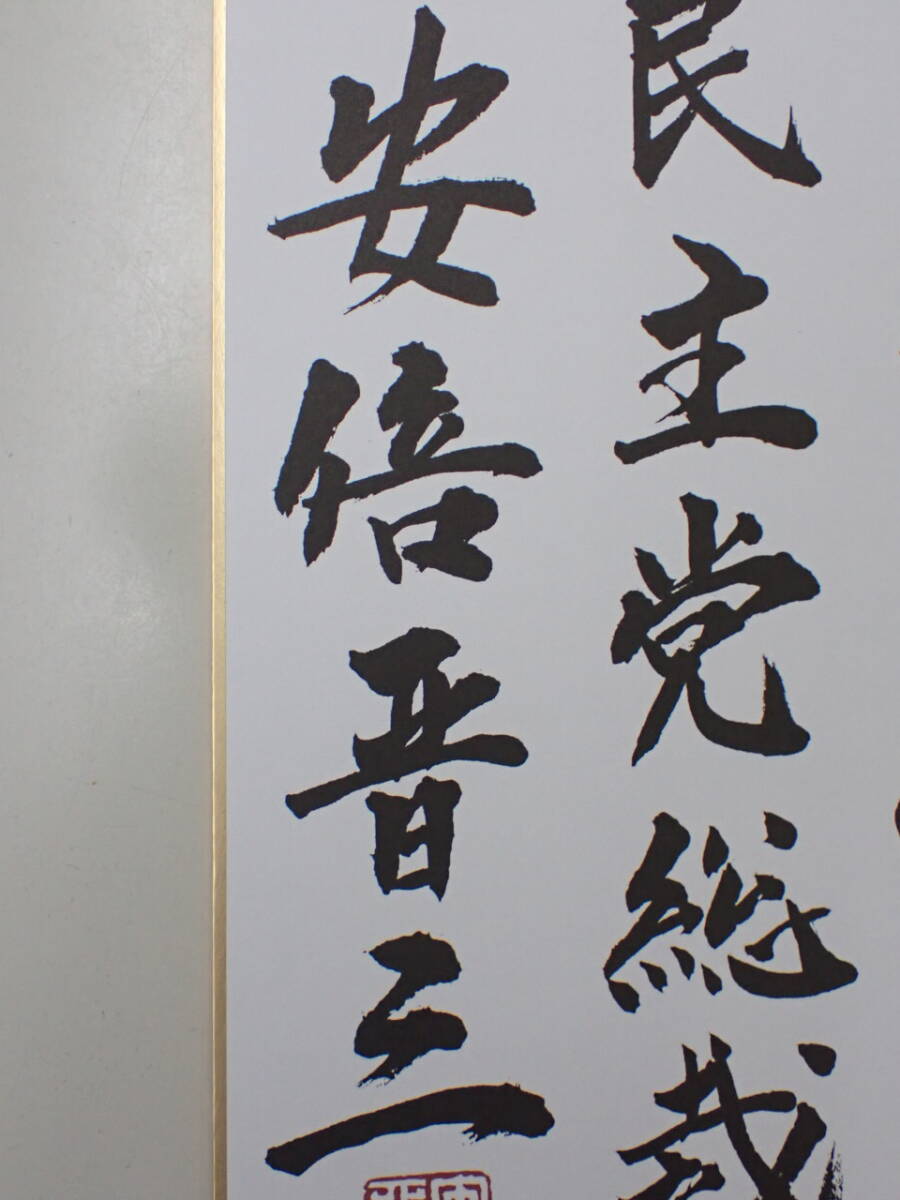 民主党総裁
安倍晋三